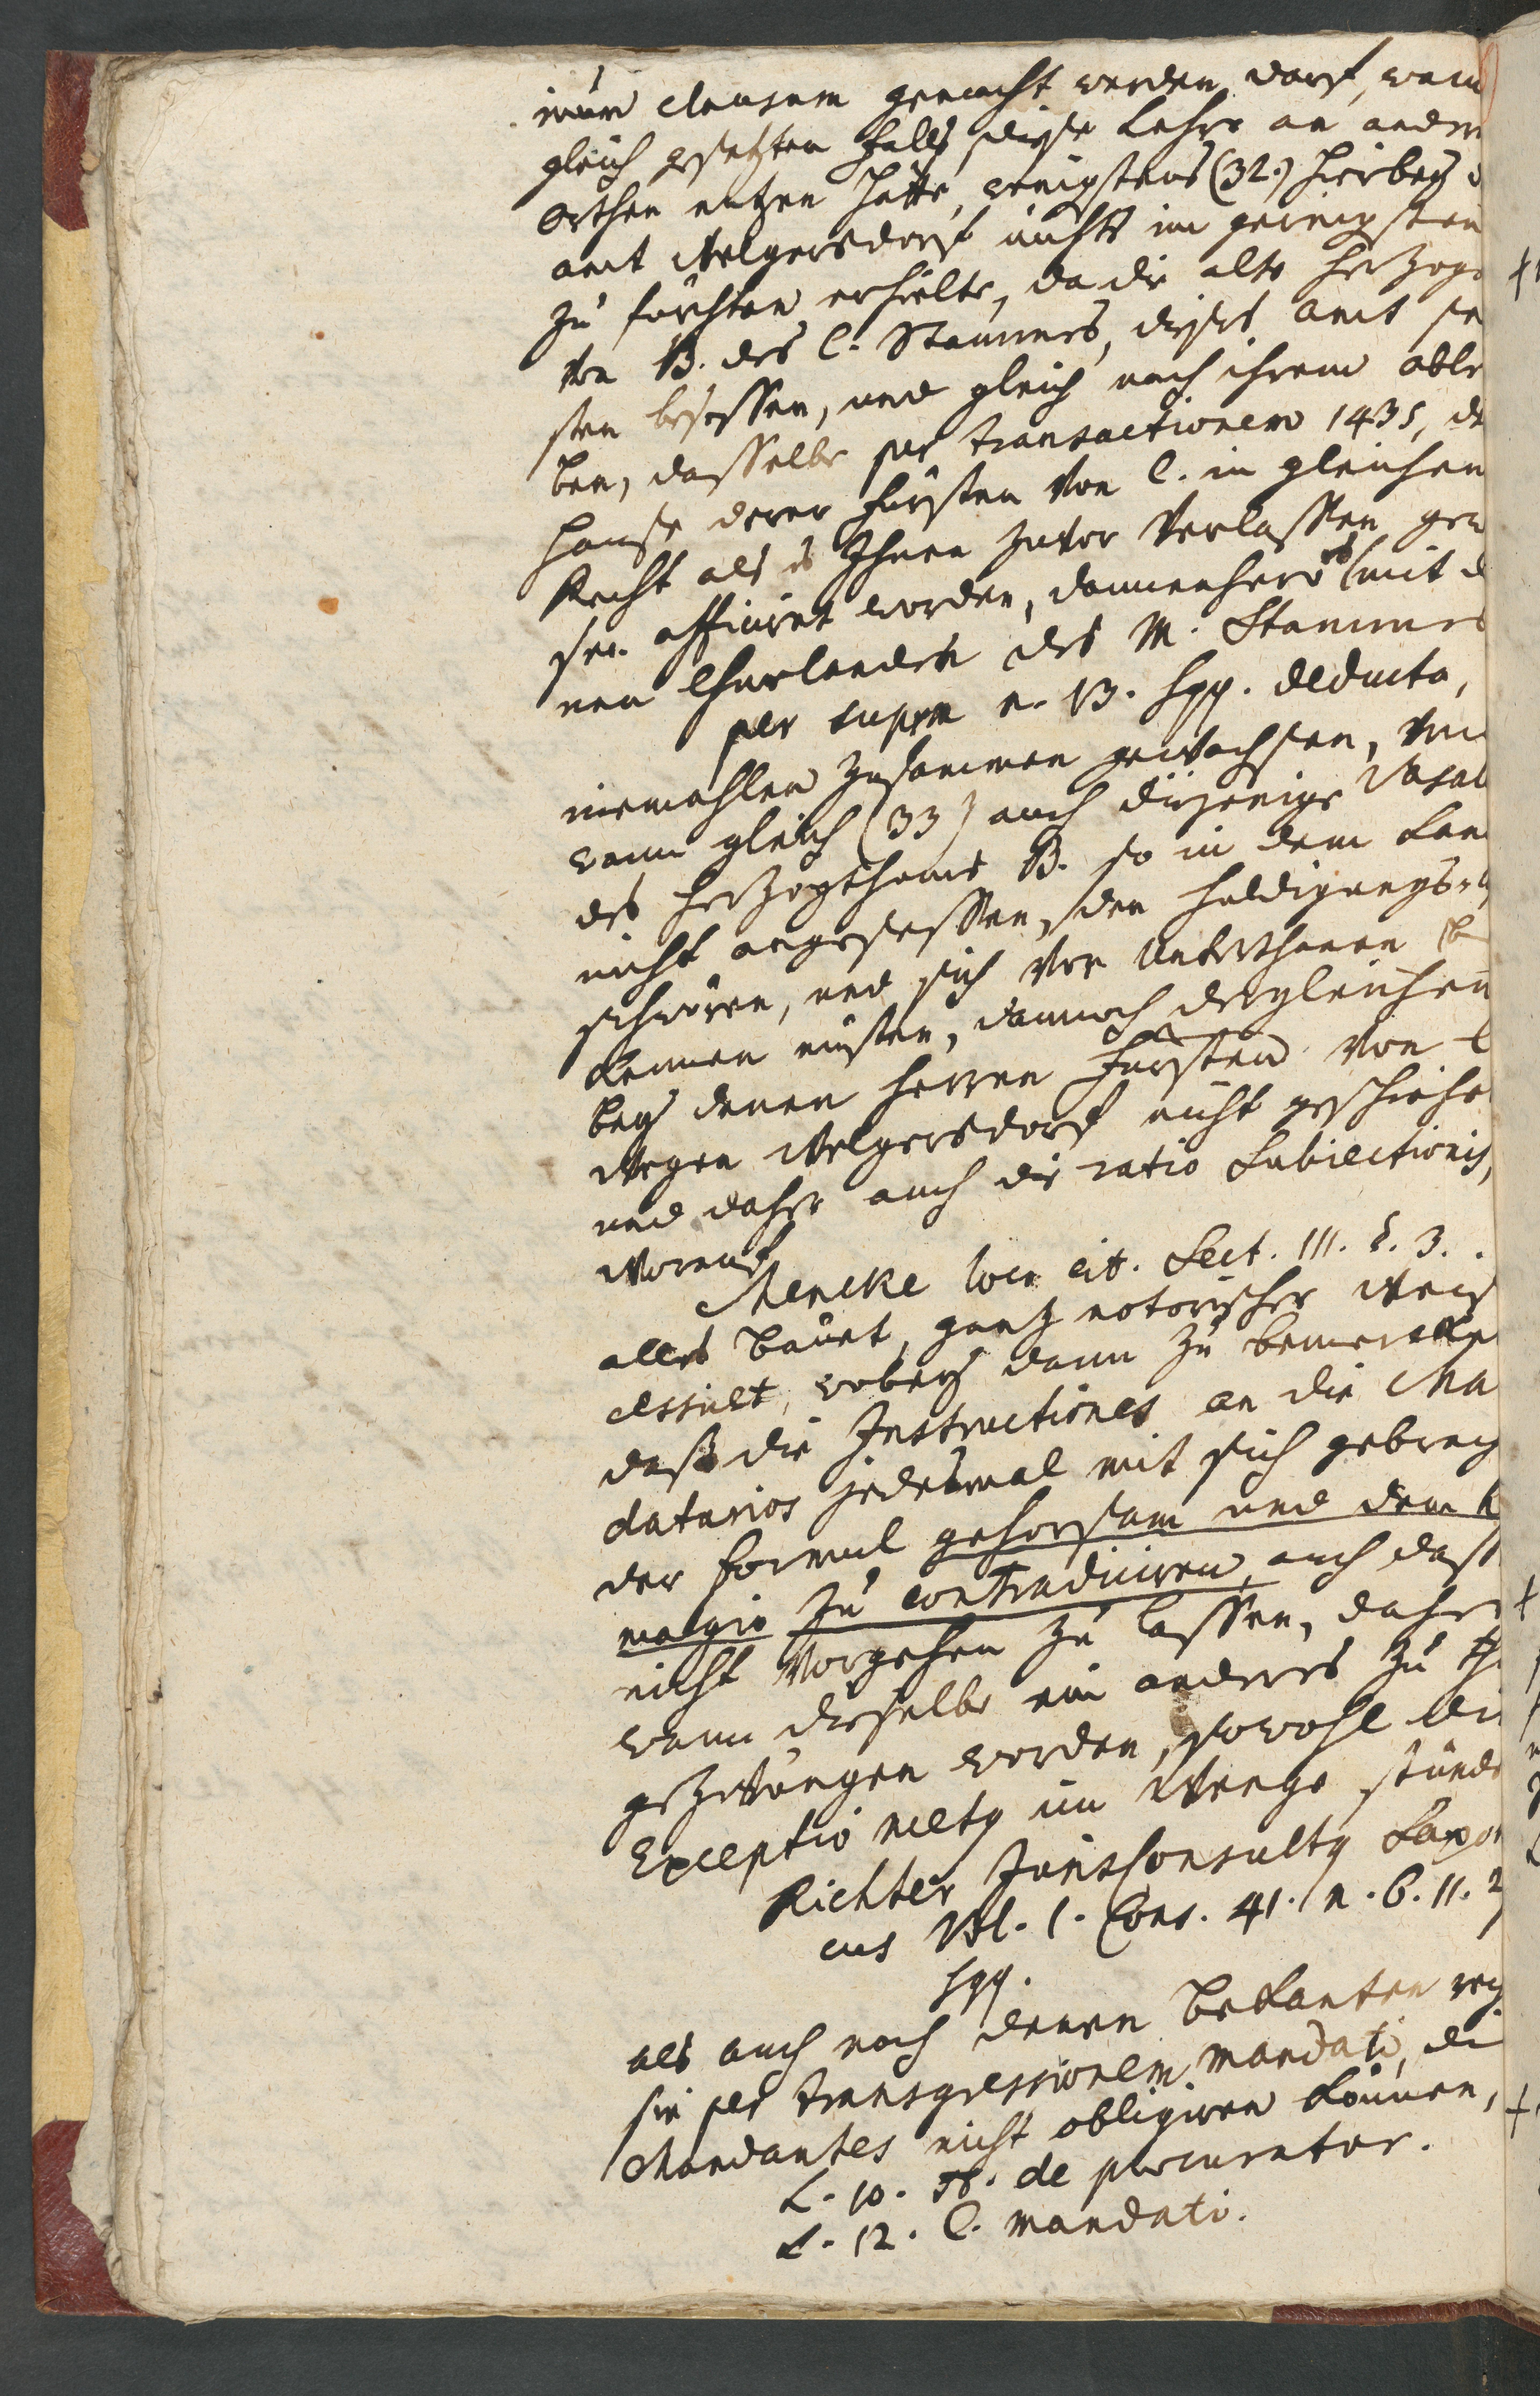 nur clausam gemacht werden darf, wann
gleich gesetzten Falls, diese Lehre an andern
Orthen nutzen hätte, wenigstens (32.) hierbey d
amt Welgersdorf nichts im geringsten
zu fürchten erhielte, da die alte Herzoge
von B. des C. Stammes, dieses amt se
sten besessen, und gleich nach ihrem able
ben, dasselbe per transactionem 1435, de
Hause derer Fürsten von C. in gleichen
Recht als es Ihnen zuvor verlassen gew
sen afficiret worden, dannenhero es (mit d
nen Churlanden des M. Stammes
per supra n. 13. sqq. deducta,
niemahlen zusammen gewachsen, und
wann gleich (33) auch diejenige Vasal
des Herzogthums B. so in dem Lan
nicht angesessen, den Huldigungs-
schwören, und sich vor Unterthanen be
kennen müsten, dannoch dergleichen
bey denen Herren Fürsten von C
wegen Welgersdorf nicht geschiehe
und daher auch die ratio Subiectionis,
worauf
Mencke loco cit. Sect. III. §. 3.
alles bauet, gantz notorischer weise
cessiret, wobey dann zu bemercken
daß die Instructiones an die Man
datarios jedesmal mit sich gebrach
der formul gehorsam und dem
zu contradiciren, auch dasse
nicht vorgehen zu lassen, daher
wann dieselbe ein anderes zu th
gezwungen worden, sowohl die
Exceptio metus im Weege stünde
Richter JurisConsultus Saxon
cus Vol. 1. Cons. 41. n. 6. 11. 2
sqq.
als auch nach denen bekanten
sie per transgressionem mandati, die
Mandantes nicht obligiren können,
L. 10. ff. de procurator.
L. 12. C. mandati.